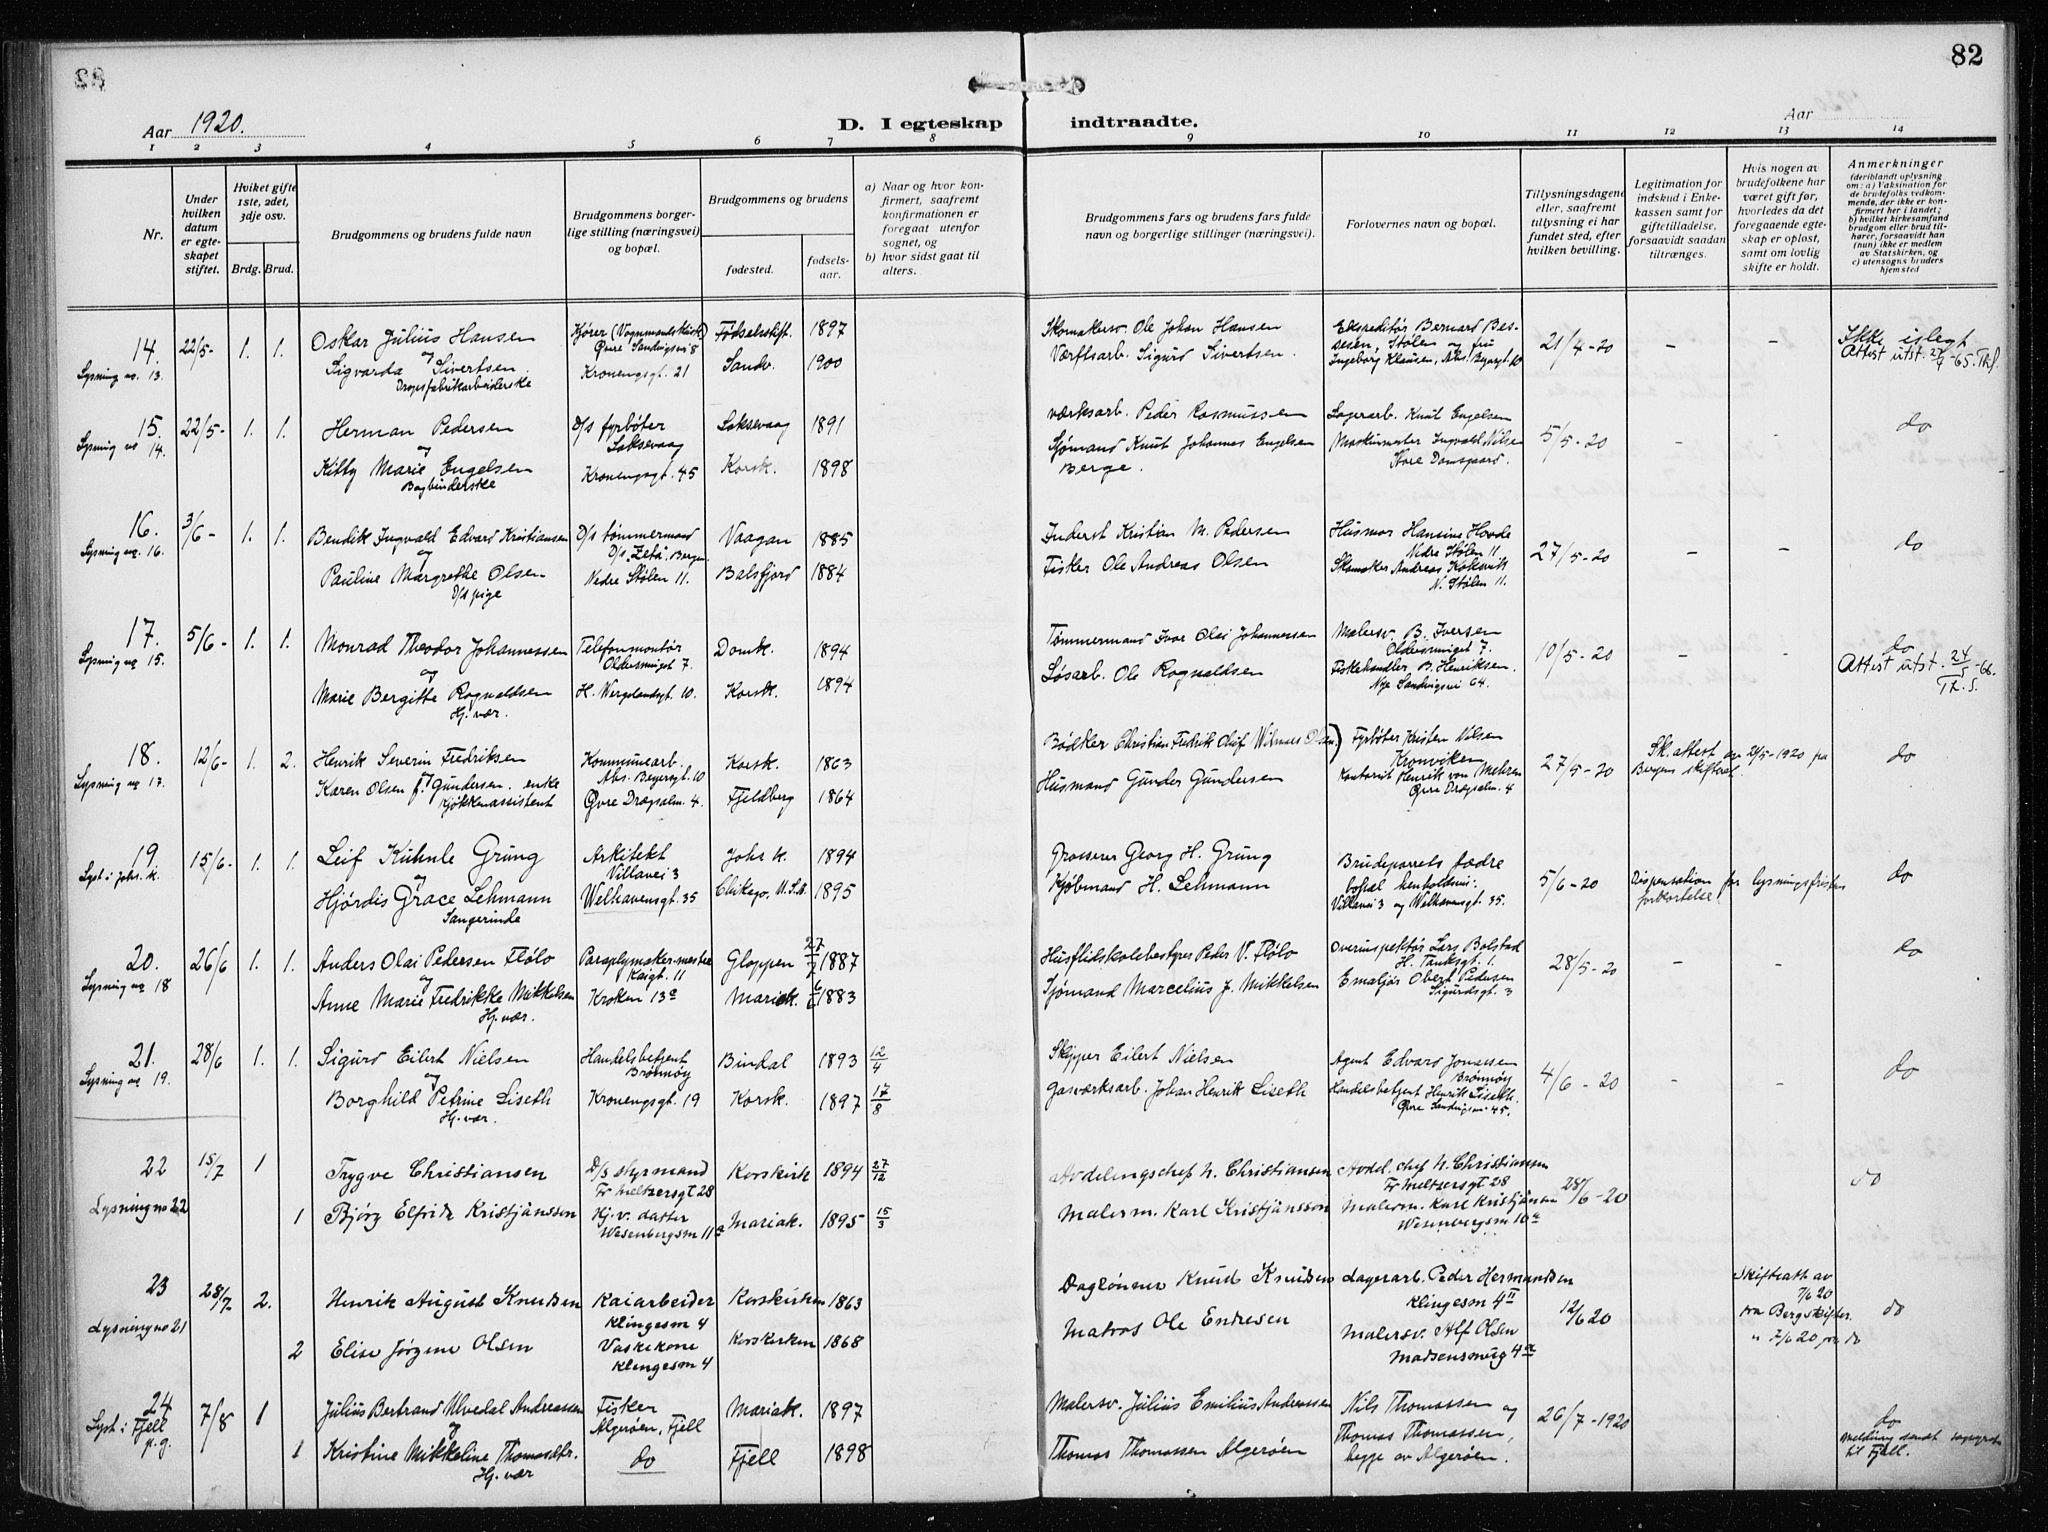 82
Aar 1920.
D. I egteskap indtraadte.
Aar
1 2 3 4 5 6 7 8 9 10 11 12 13 14
Nr.
Under hvilken datum er egteskapet stiftet.
Hviket gifte 1ste, 2det, 3dje osv.
Brdg. Brud.
Brudgommens og brudens fulde navn
Brudgommens borgerlige stilling (næringsvei) og bopæl.
Brudgommens og brudens
fødested.
fødselsaar.
a) Naar og hvor konfirmert, saafremt konfirmationen er foregaat utenfor sognet, og
b) hvor sidst gaat til alters.
Brudgommens fars og brudens fars fulde navn og borgerlige stillinger (næringsvei).
Forlovernes navn og bopæl.
Tillysningsdagene eller, saafremt tillysning ei har fundet sted, efter hvilken bevilling.
Legitimation for indskud i Enkekassen samt for giftetilladelse, forsaavidt saadan tiltrænges.
Hvis nogen av brudefolkene har været gift før, hvorledes da det foregaaende egteskap er opløst, samt om lovlig skifte er holdt.
Anmerkninger
(deriblandt oplysning om: a) Vaksination for de brudefolks vedkommende, der ikke er konfirmert her i landet; b) hvilket kirkesamfund brudgom eller brud tilhører, forsaavidt han (hun) ikke er medlem av Statskirken, og c) utensogns bruders hjemsted
14. 22/5- 1. 1. Oskar Julius Hansen Kjører Øvre Sandvigsvei 8 Fødselsstift. 1897 Skomakersv. Ole Johan Hansen Ekspeditør Bernard Stølen og fru 21/4-20 - - Ikke islegt
Lysning no. 13. og Sigvarda Sivertsen Dropsfabrikarbeiderske Kronengsgt. 21 Sandv. 1900 Værftsarb. Sigurd Sivertsen. Ingeborg Klausen, Attest utst.
15. 22/5- 1. 1. Herman Pedersen D/s fyrbøter Laksevaag Laksevaag 1891 Værksarb. Peder Rasmussen Lagerarb. Knut Engelsen 5/5-20 - - do
Lysning no 14. og Kitty Marie Engelsen Bogbinderske Kronengsgt. 45 Korsk. 1898 Sjømand Knut Johannes Engelsen Berge. Maskinmester Ingvald Nilsen Store Damsgaard.
16. 3/6- 1. 1. Bendik Ingvald Edvard Kristiansen D/s tømmermand D/s "Zeta", Bergen Vaagan 1885 Inderst Kristian M. Pedersen Husmor Hansine Hovde Nedre Stølen 11 27/5-20 - - do
Lysning no. 16. og Pauline Margrethe Olsen D/s pige Nedre Stølen 11. Balsfjord 1884 Fisker Ole Andreas Olsen Skomaker Andreas N. Stølen 11.
17. 5/6- 1. 1. Monrad Theodor Johannessen Telefonmontør Oldersmuget 7. Domk. 1894 Tømmermand Ivar Olai Johannessen Malersv. B. Iversen Oldersmuget 7. 10/5-20 - - do
Lysning no 15. og Marie Bergitte Rognaldsen Hj. vær. H. Wergelandsgt. 10. Korsk. 1894 Løsarb. Ole Rognaldsen Fiskehandler B. Henriksen. Nye Sandvigsvei 64. Attest utst. 24/5-66. Th. S.
18. 12/6- 1. 2. Henrik Severin Fredriksen Kommunearb. Abs. Beyersgt. 10 Korsk. 1863 Bødker Christian Fredrik Oluf Wilmers Olsen Fyrbøter Kristen Nilsen Kronviken 27/5-20 Sk.attest av 21/5-1920 fra Bergens skifteret. do
Lysning no 17. Karen Olsen f. Gundersen. enke Kjøkkenassistent Øvre Dragsalm. 4. Fjeldberg 1864 Husmand Gunder Gundersen Kontorist Henrik von Mehren Øvre Dragsalm. 4
19. 15/6- 1. 1. Leif Kuhnle Grung Arkitekt Villavei 3 Johs k. 1894 Grosserer Georg H. Grung Brudeparrets fædre 5/6-20 Dispensation for lysningsfristens forkortelse do
Lyst i Johs. k. og Hjørdis Grace Lehmann Sangerinde Welhavensgt. 35 Chikago, U.S.A. 1895 Kjøbmand H. Lehmann bopæl henholdsvi: Villavei 3 og Welhavensgt. 35.
20. 26/6 1. 1. Anders Olai Pedersen Flølo Paraplymaker-mester Kaigt. 11 Gloppen 1887 Husflidskolebestyrer Peder V. Flølo Overinspektør Lars Bolstad H. Tanksgt. 1. 28/5-20 - - do
Lysning no 18 og Anne Marie Fredrikke Mikkelsen Hj. vær. Kroken 13a Mariak. 1883 Sjømand Marcelius J. Mikkelsen Emaljør Obert Pedersen Sigurdsgt. 3
21. 28/6 1. 1. Sigurd Eilert Nielsen Handelsbetjent Brønnøy Bindal 1893 12/4 Skipper Eilert Nielsen Agent Edvard Jonassen Brønnøy 4/6-20 - - do
Lysning no 19. og Borghild Petrine Liseth Hj. vær. Kronengsgt. 19 Korsk. 1897 17/8 Gasværksarb. Johan Henrik Liseth Handelsbetjent Henrik Liseth. Øvre Sandvigsvei 45.
22 15/7 1 Trygve Christiansen D/s styrmand Fr Meltzersgt 28 Korskirk 1894 27/12 Avdelingschef N. Christiansen Avdel. chef N. Christiansen Fr Meltzersgt 28 28/6-20 do
Lysning no 22 1 Bjørg Elfride Kristjánsson Hj. v. datter Wesenbergsm 11a Mariak. 1895 15/3 Malerm. Karl Kristjánsson Malerm. Karl Kristjánsson Wesenbergsm
23 28/7 2. Henrik August Knudsen Kaiarbeider Klingesm 4 Korskirken 1863 Daglønner Knud Knudsen Lagerarb. Peder Hermandsen Klingesm 4 II 12/6 20 Skifteatt. av 7/6 20 do
Lysning no 21 2 Elise Jørgine Olsen Vaskekone Klingesm 4 Korskirken 1868 Matros Ole Endresen Malersv. Alf Olsen Madsensmug 4a fra Berg. skifter. " 7/6 20 fra do
24 7/8 1 Julius Bertrand Ulvedal Andreassen Fisker Algerøen, Fjell Mariak. 1897 Malersv. Julius Emilius Andreassen Nils Thomassen og 26/7-1920 do
Lyst i Fjell p. g. og 1 Kristine Mikkeline Thomasdtr. Hj. vær do Fjell 1898 Thomas Thomassen Algerøen Thomas Thomassen, begge av Algerøen. Melding sendt sogneprest til Fjell.